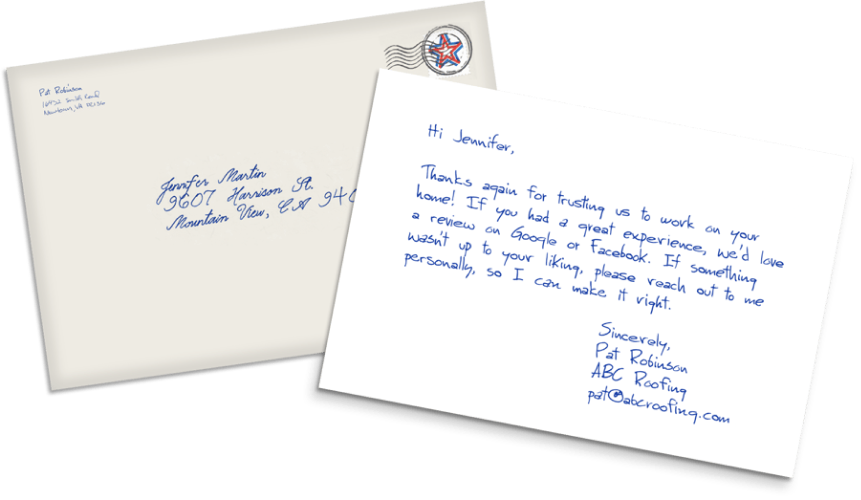 Pat Robinson
Jennifer Martin
9607 Harrison St.
Mountain View, CA
Hi Jennifer,
Thanks again for trusting us to work on your
home! If you had a great experience, we'd love
a review on Google or Facebook. If something
wasn't up to your liking, please reach out to me
personally, so I can make it right.
Sincerely,
Pat Robinson
ABC Roofing
pat@abcroofing.com